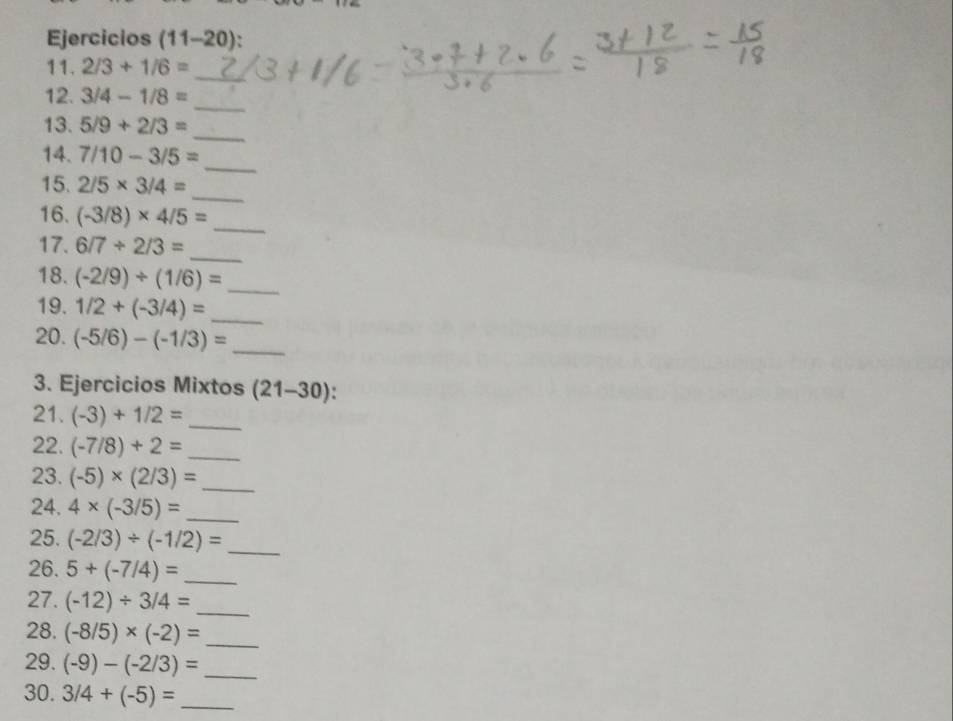 Ejercicios (11–20):
11. 2/3 + 1/6 = 2/3+1/6 = 3•7+2•6/3•6 = 3+12/18 = 15/18
12. 3/4 – 1/8 = ____
13. 5/9 + 2/3 = ____
14. 7/10 – 3/5 = ____
15. 2/5 × 3/4 = ____
16. (-3/8) × 4/5 = ____
17. 6/7 ÷ 2/3 = ____
18. (-2/9) ÷ (1/6) = ____
19. 1/2 + (-3/4) = ____
20. (-5/6) – (-1/3) = ____
3. Ejercicios Mixtos (21–30):
21. (-3) + 1/2 = ____
22. (-7/8) + 2 = ____
23. (-5) × (2/3) = ____
24. 4 × (-3/5) = ____
25. (-2/3) ÷ (-1/2) = ____
26. 5 + (-7/4) = ____
27. (-12) ÷ 3/4 = ____
28. (-8/5) × (-2) = ____
29. (-9) – (-2/3) = ____
30. 3/4 + (-5) = ____